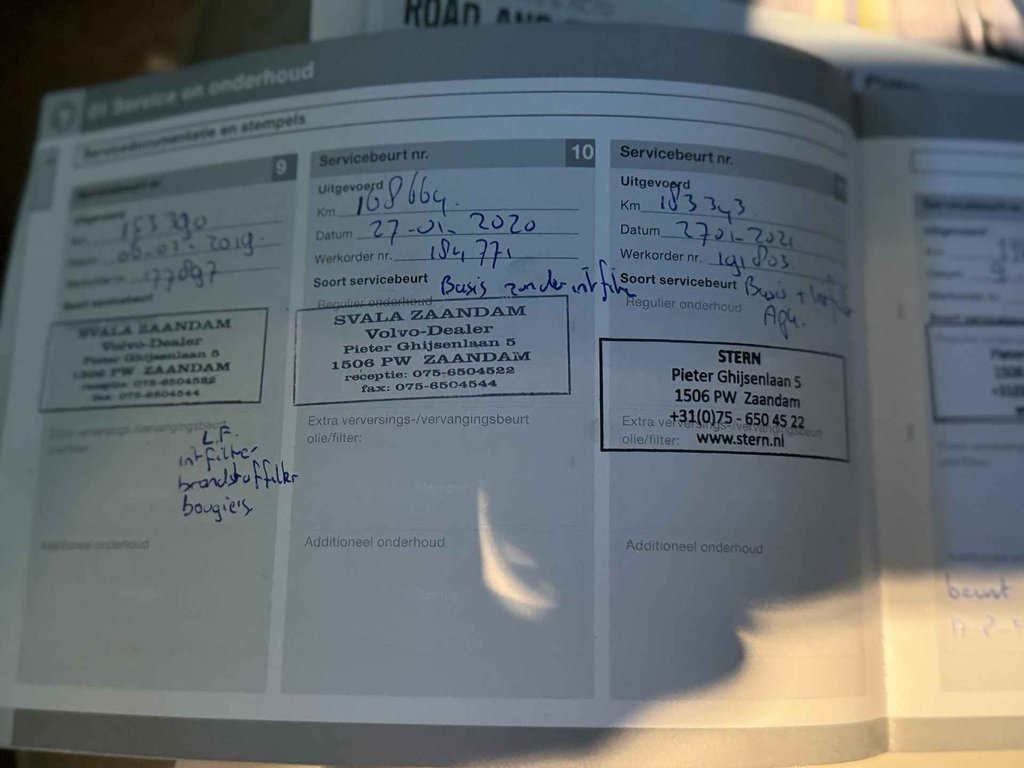 ROAD AND
Service en onderhoud
Servicedocumentatie en stempels
9
Servicebeurt nr.
Uitgevoerd
Km 153390
Datum 08-01-2019.
Werkorder nr. 177897
Soort servicebeurt
SVALA ZAANDAM
Volvo-Dealer
Pieter Ghijsenlaan 5
1506 PW ZAANDAM
receptie: 075-6504522
fax: 075-6504544
Extra verversings-/vervangingsbeurt
olie/filter:
L.F.
intfilter
brandstoffilter
bougies
Additioneel onderhoud
Servicebeurt nr. 10
Uitgevoerd
Km 168664.
Datum 27-01-2020
Werkorder nr. 184771
Soort servicebeurt Basis zonder intfilter
Regulier onderhoud
SVALA ZAANDAM
Volvo-Dealer
Pieter Ghijsenlaan 5
1506 PW ZAANDAM
receptie: 075-6504522
fax: 075-6504544
Extra verversings-/vervangingsbeurt
olie/filter:
Stempel
Additioneel onderhoud
Stempel
Servicebeurt nr.
Uitgevoerd
Km 183343
Datum 27-01-2021
Werkorder nr. 191803
Soort servicebeurt Basis +
Regulier onderhoud
STERN
Pieter Ghijsenlaan 5
1506 PW Zaandam
+31(0)75 - 650 45 22
www.stern.nl
Extra verversings-/vervangingsbeurt
olie/filter:
Additioneel onderhoud
beurt